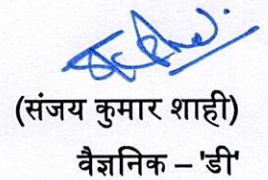 (संजय कुमार शाही)
वैज्ञनिक – 'डी'